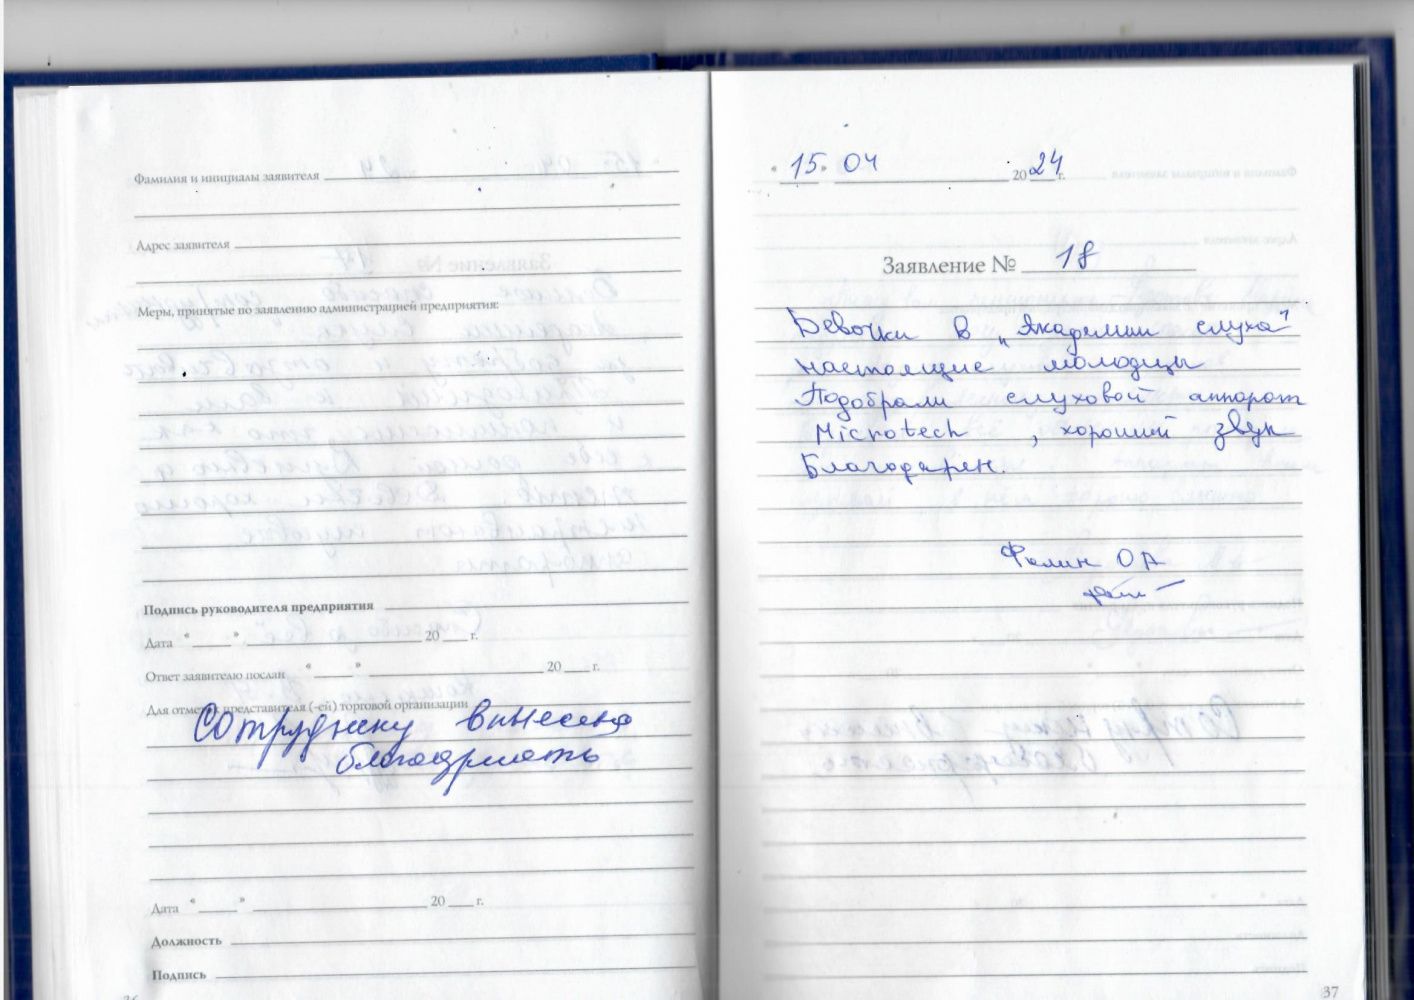 Фамилия и инициалы заявителя
Адрес заявителя
Меры, принятые по заявлению администрацией предприятия:
Подпись руководителя предприятия
Дата « » 20 г.
Ответ заявителю послан « » 20 г.
Для отметок представителя (-ей) торговой организации
Сотруднику вынесена
благодарность
Дата « » 20 г.
Должность
Подпись
36
« 15 » 04 2024 г.
Заявление № 18
Девочки в „Академии слуха"
настоящие молодцы
Подобрали слуховой аппарат
Microtech , хороший звук
Благодарен.
Фалин ОА
37